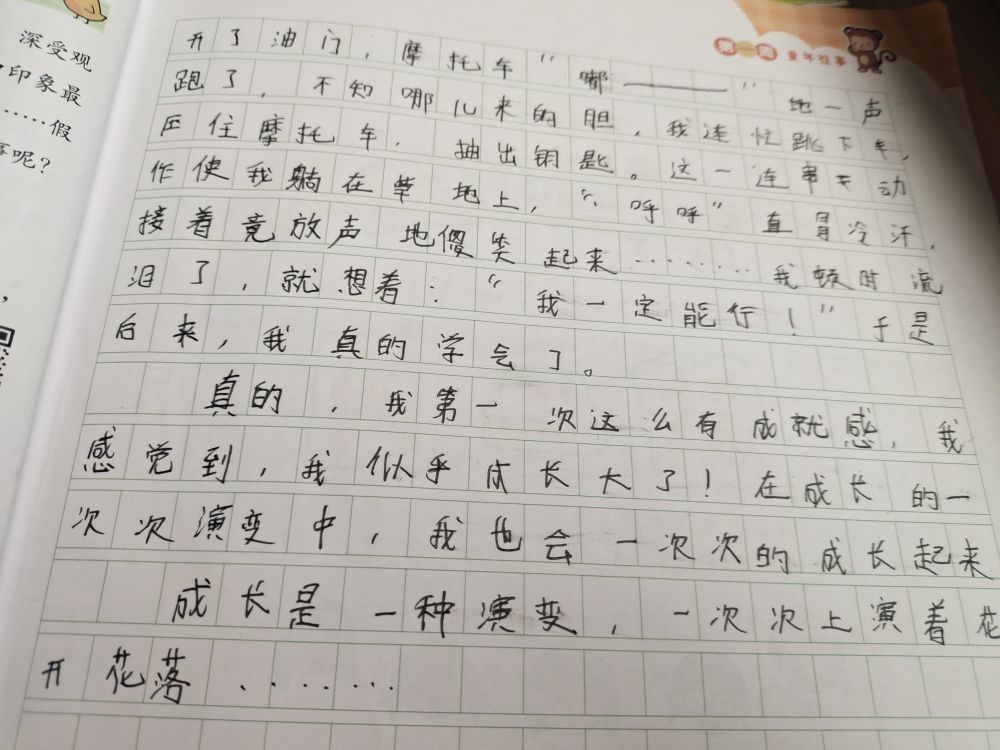 深受观
印象最
……假
事呢？
第一周 童年往事
开了油门，摩托车“嘟———”地一声
跑了，不知哪儿来的胆，我连忙跳下车，
压住摩托车，抽出钥匙。这一连串动
作使我躺在草地上，“呼呼”直冒冷汗，
接着竟放声地傻笑起来………我顿时流
泪了，就想着：“我一定能行！”于是
后来，我真的学会了。
真的，我第一次这么有成就感，我
感觉到，我似乎成长大了！在成长的一
次次演变中，我也会一次次的成长起来
成长是一种演变，一次次上演着花
开花落.......